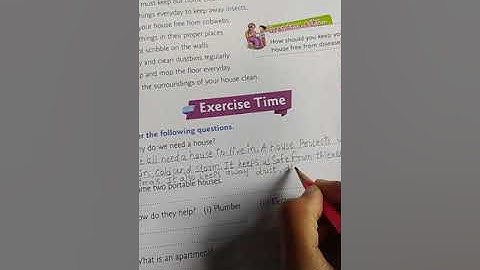 must keep our hou
hings everyday to keep away insects.
your house free from cobwebs.
hings in their proper places
d scribble on the walls
y and clean dustbins regularly
p and mop the floor everyday.
the surroundings of your house clean.
How should you keep you
house free from disease
Exercise Time
er the following questions.
hy do we need a house?
e all need a house to live in. A house Protects
n, cold and storm. It keeps us safe from
It also keeps away dust,
ame two portable houses.
ow do they help? (i) Plumber (ii) Ele
What is an apartment